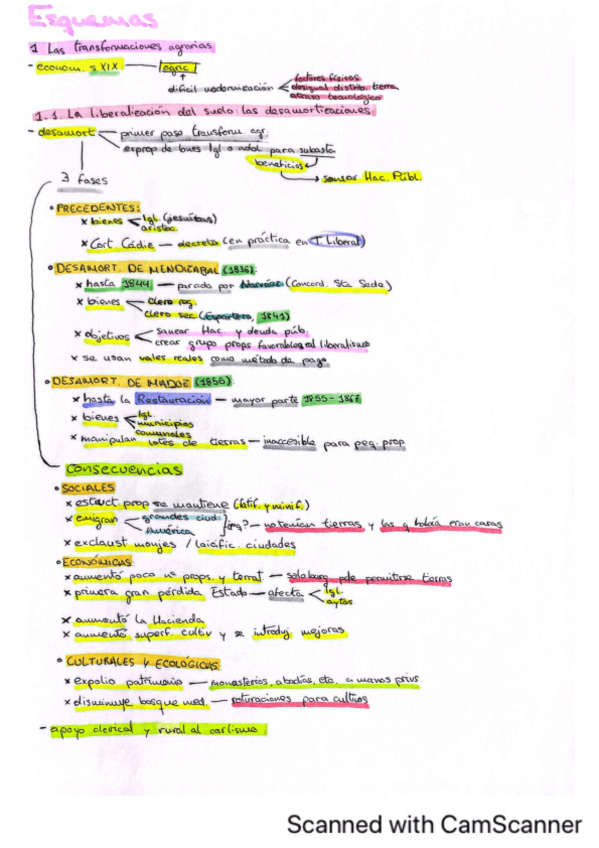 Esquemas
1 Las transformaciones agrarias
- econom. s XIX — agric
difícil modernización
factores físicos
desigual distrib. tierra
atraso tecnológico
1.1. La liberalización del suelo: las desamortizaciones
- desamort — primer paso transform agr.
exprop de bienes Igl o nobl para subasta
beneficios
→ sanear Hac. Públ.
3 fases
• PRECEDENTES:
x bienes
Igl. (jesuitas)
aristoc.
x Cort Cádiz — decreto (en práctica en T. Liberal)
• DESAMORT. DE MENDIZABAL (1836):
x hasta 1844 — parado por Narváez (Concord. Sta Sede)
x bienes
clero reg.
clero sec (Espartero, 1841)
x objetivos
sanear Hac y deuda púb.
crear grupo props favorables al liberalismo
x se usan vales reales como método de pago
• DESAMORT. DE MADOZ (1855)
x hasta la Restauración — mayor parte 1855-1867
x bienes
Igl.
municipios
comunales
x manipulan lotes de tierras — inaccesible para peq. prop
Consecuencias
• SOCIALES
x estruct prop se mantiene (latif. y minif.)
x emigran
grandes ciud.
América
no tenían tierras y las q había eran caras
x exclaust monjes / laicific. ciudades
• ECONÓMICAS:
x aumentó poco nº props. y terrat. — solo burg pde permitirse tierras
x primera gran pérdida Estado — afecta
Igl.
aytos.
x aumentó la Hacienda
x aumentó superf. cultiv y se introduj mejoras
• CULTURALES Y ECOLÓGICAS
x expolio patrimonio — monasterios, abadías, etc. a manos privs.
x disminuye bosque med. — roturaciones para cultivos
- apoyo clerical y rural al carlismo
Scanned with CamScanner